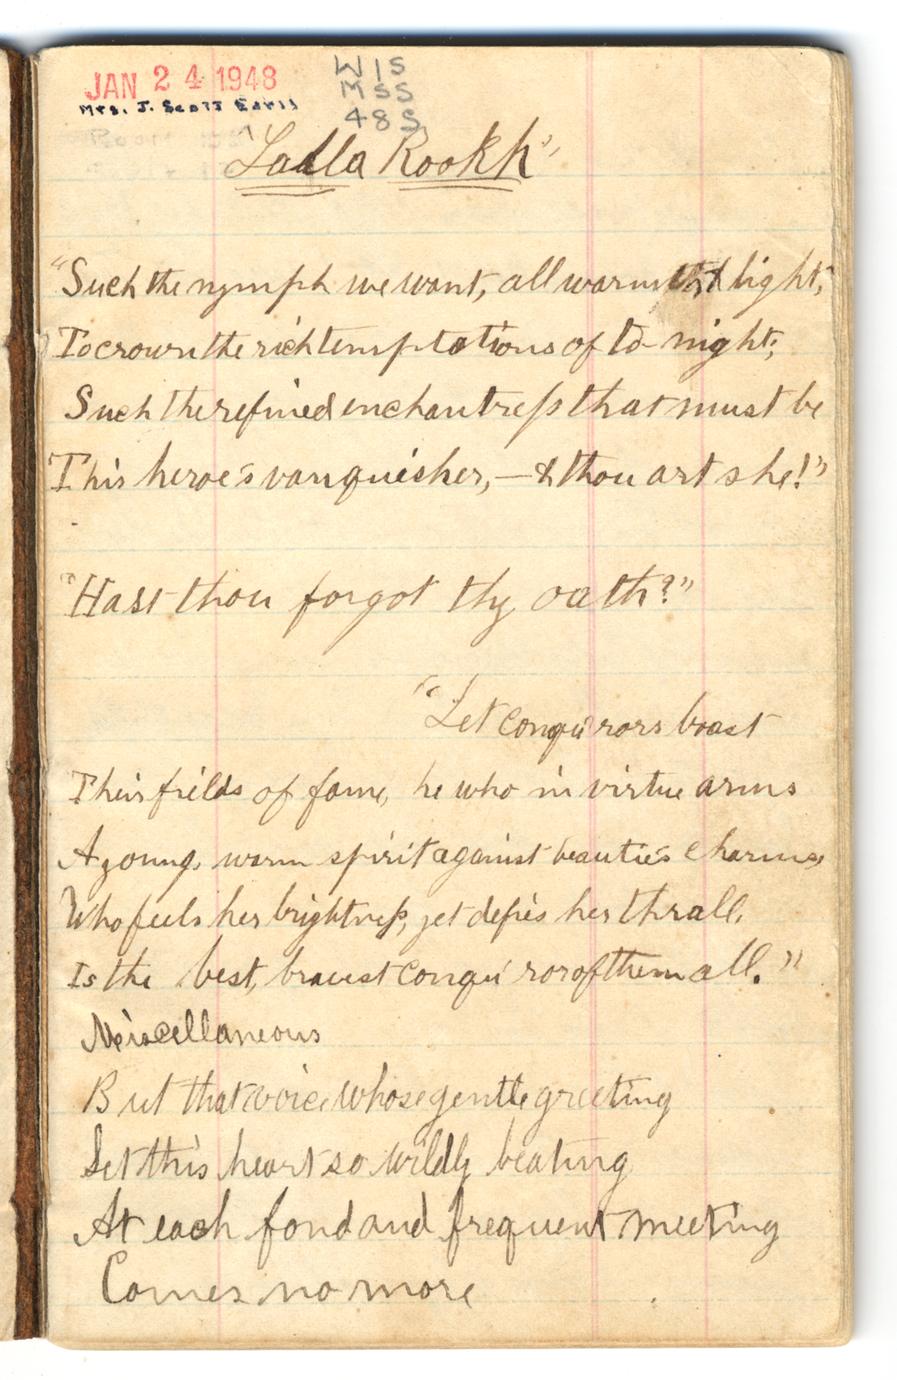 JAN 24 1948
Mrs. J. Scott Earls
WIS
MSS
48S
"Lalla Rookh"
"Such the nymph we want, all warmth & light,
To crown the rich temptations of to-night;
Such the refined enchantress that must be
This heroe's vanquisher,—& thou art she!"
"Hast thou forgot thy oath?"
"Let conqu'rors boast
Their fields of fame, he who in virtue arms
A young, warm spirit against beautie's charms,
Who feels her brightness, yet defies her thrall,
Is the best, bravest conqu'ror of them all."
Miscellaneous
But that voice whose gentle greeting
Set this heart so wildly beating
At each fond and frequent meeting
Comes no more